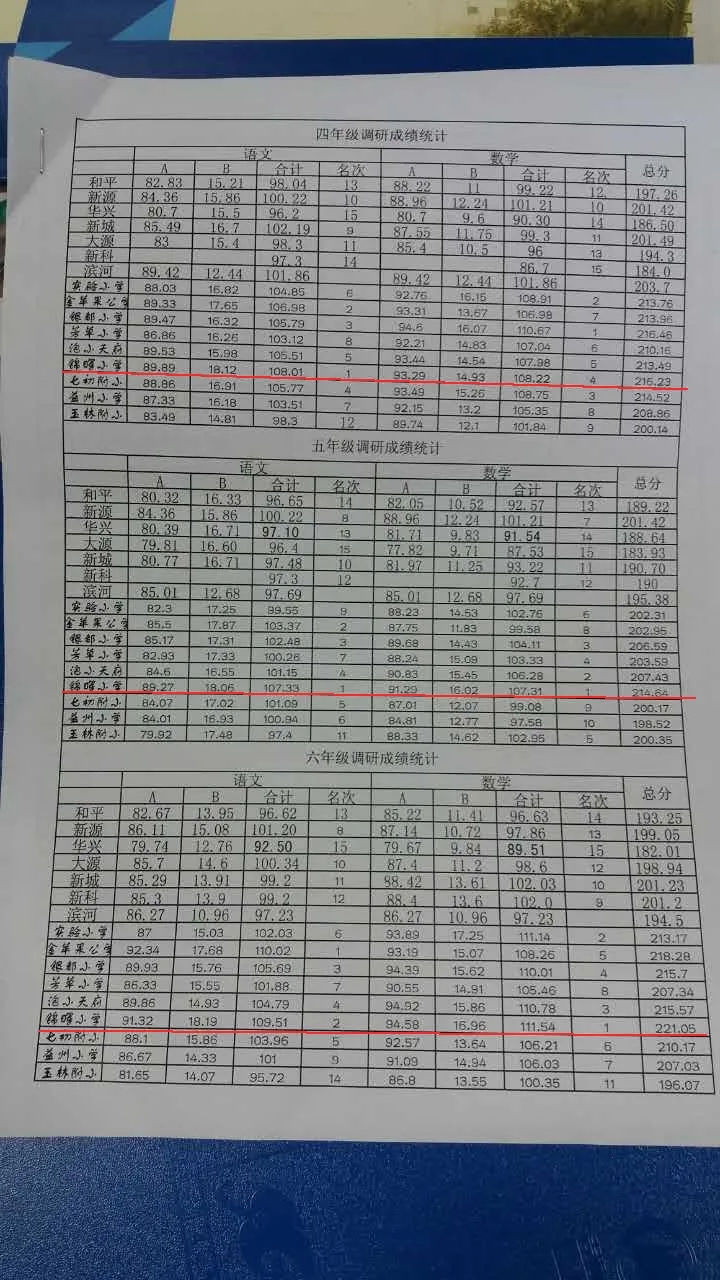 四年级调研成绩统计
语文 数学 总分
A B 合计 名次 A B 合计 名次
和平 82.83 15.21 98.04 13 88.22 11 99.22 12 197.26
新源 84.36 15.86 100.22 10 88.96 12.24 101.21 10 201.42
华兴 80.7 15.5 96.2 15 80.7 9.6 90.30 14 186.50
新城 85.49 16.7 102.19 9 87.55 11.75 99.3 11 201.49
大源 83 15.4 98.3 11 85.4 10.5 96 13 194.3
新科 97.3 14 86.7 15 184.0
滨河 89.42 12.44 101.86 89.42 12.44 101.86 203.7
实验小学 88.03 16.82 104.85 6 92.76 16.15 108.91 2 213.76
金苹果公学 89.33 17.65 106.98 2 93.31 13.67 106.98 7 213.96
银都小学 89.47 16.32 105.79 3 94.6 16.07 110.67 1 216.46
芳草小学 86.86 16.26 103.12 8 92.21 14.83 107.04 6 210.16
泡小天府 89.53 15.98 105.51 5 93.44 14.54 107.98 5 213.49
锦晖小学 89.89 18.12 108.01 1 93.29 14.93 108.22 4 216.23
七初附小 88.86 16.91 105.77 4 93.49 15.26 108.75 3 214.52
益州小学 87.33 16.18 103.51 7 92.15 13.2 105.35 8 208.86
玉林附小 83.49 14.81 98.3 12 89.74 12.1 101.84 9 200.14
五年级调研成绩统计
语文 数学 总分
A B 合计 名次 A B 合计 名次
和平 80.32 16.33 96.65 14 82.05 10.52 92.57 13 189.22
新源 84.36 15.86 100.22 8 88.96 12.24 101.21 7 201.42
华兴 80.39 16.71 97.10 13 81.71 9.83 91.54 14 188.64
大源 79.81 16.60 96.4 15 77.82 9.71 87.53 15 183.93
新城 80.77 16.71 97.48 10 81.97 11.25 93.22 11 190.70
新科 97.3 12 92.7 12 190
滨河 85.01 12.68 97.69 85.01 12.68 97.69 195.38
实验小学 82.3 17.25 99.55 9 88.23 14.53 102.76 6 202.31
金苹果公学 85.5 17.87 103.37 2 87.75 11.83 99.58 8 202.95
银都小学 85.17 17.31 102.48 3 89.68 14.43 104.11 3 206.59
芳草小学 82.93 17.33 100.26 7 88.24 15.09 103.33 4 203.59
泡小天府 84.6 16.55 101.15 4 90.83 15.45 106.28 2 207.43
锦晖小学 89.27 18.06 107.33 1 91.29 16.02 107.31 1 214.64
七初附小 84.07 17.02 101.09 5 87.01 12.07 99.08 9 200.17
益州小学 84.01 16.93 100.94 6 84.81 12.77 97.58 10 198.52
玉林附小 79.92 17.48 97.4 11 88.33 14.62 102.95 5 200.35
六年级调研成绩统计
语文 数学 总分
A B 合计 名次 A B 合计 名次
和平 82.67 13.95 96.62 13 85.22 11.41 96.63 14 193.25
新源 86.11 15.08 101.20 8 87.14 10.72 97.86 13 199.05
华兴 79.74 12.76 92.50 15 79.67 9.84 89.51 15 182.01
大源 85.7 14.6 100.34 10 87.4 11.2 98.6 12 198.94
新城 85.29 13.91 99.2 11 88.42 13.61 102.03 10 201.23
新科 85.3 13.9 99.2 12 88.4 13.6 102.0 9 201.2
滨河 86.27 10.96 97.23 86.27 10.96 97.23 194.5
实验小学 87 15.03 102.03 6 93.89 17.25 111.14 2 213.17
金苹果公学 92.34 17.68 110.02 1 93.19 15.07 108.26 5 218.28
银都小学 89.93 15.76 105.69 3 94.39 15.62 110.01 4 215.7
芳草小学 86.33 15.55 101.88 7 90.55 14.91 105.46 8 207.34
泡小天府 89.86 14.93 104.79 4 94.92 15.86 110.78 3 215.57
锦晖小学 91.32 18.19 109.51 2 94.58 16.96 111.54 1 221.05
七初附小 88.1 15.86 103.96 5 92.57 13.64 106.21 6 210.17
益州小学 86.67 14.33 101 9 91.09 14.94 106.03 7 207.03
玉林附小 81.65 14.07 95.72 14 86.8 13.55 100.35 11 196.07